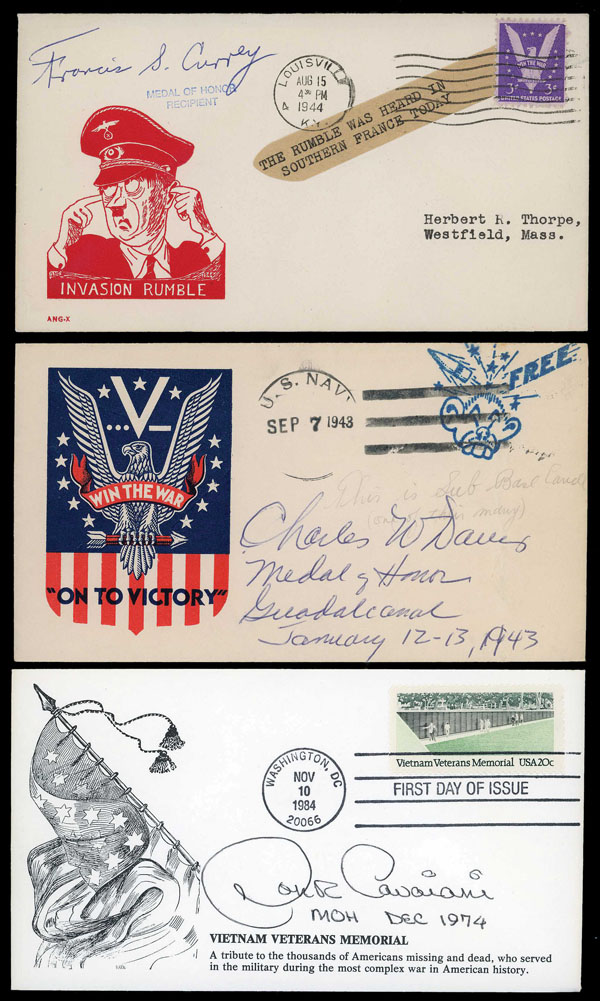 Francis S. Currey
MEDAL OF HONOR
RECIPIENT
LOUISVILLE
AUG 15
4 30 PM
1944
KY.
THE RUMBLE WAS HEARD IN
SOUTHERN FRANCE TODAY
WIN THE WAR
3¢ 3¢
UNITED STATES POSTAGE
Herbert R. Thorpe,
Westfield, Mass.
INVASION RUMBLE
ANG-X
...V–
WIN THE WAR
"ON TO VICTORY"
U.S. NAVY
SEP 7 1943
FREE
This is Sub Base
(one of their many)
Charles W Davis
Medal of Honor
Guadalcanal
January 12-13, 1943
Vietnam Veterans Memorial USA 20c
WASHINGTON, DC
NOV
10
1984
20066
FIRST DAY OF ISSUE
Jon R. Cavaiani
MOH DEC 1974
VIETNAM VETERANS MEMORIAL
A tribute to the thousands of Americans missing and dead, who served
in the military during the most complex war in American history.